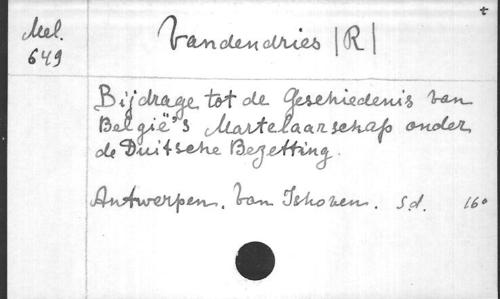 Mel.
649
Vandendries |R|
Bijdrage tot de Geschiedenis van
België's Martelaarschap onder
de Duitsche Bezetting.
Antwerpen. Van Ishoven. s.d. 16°